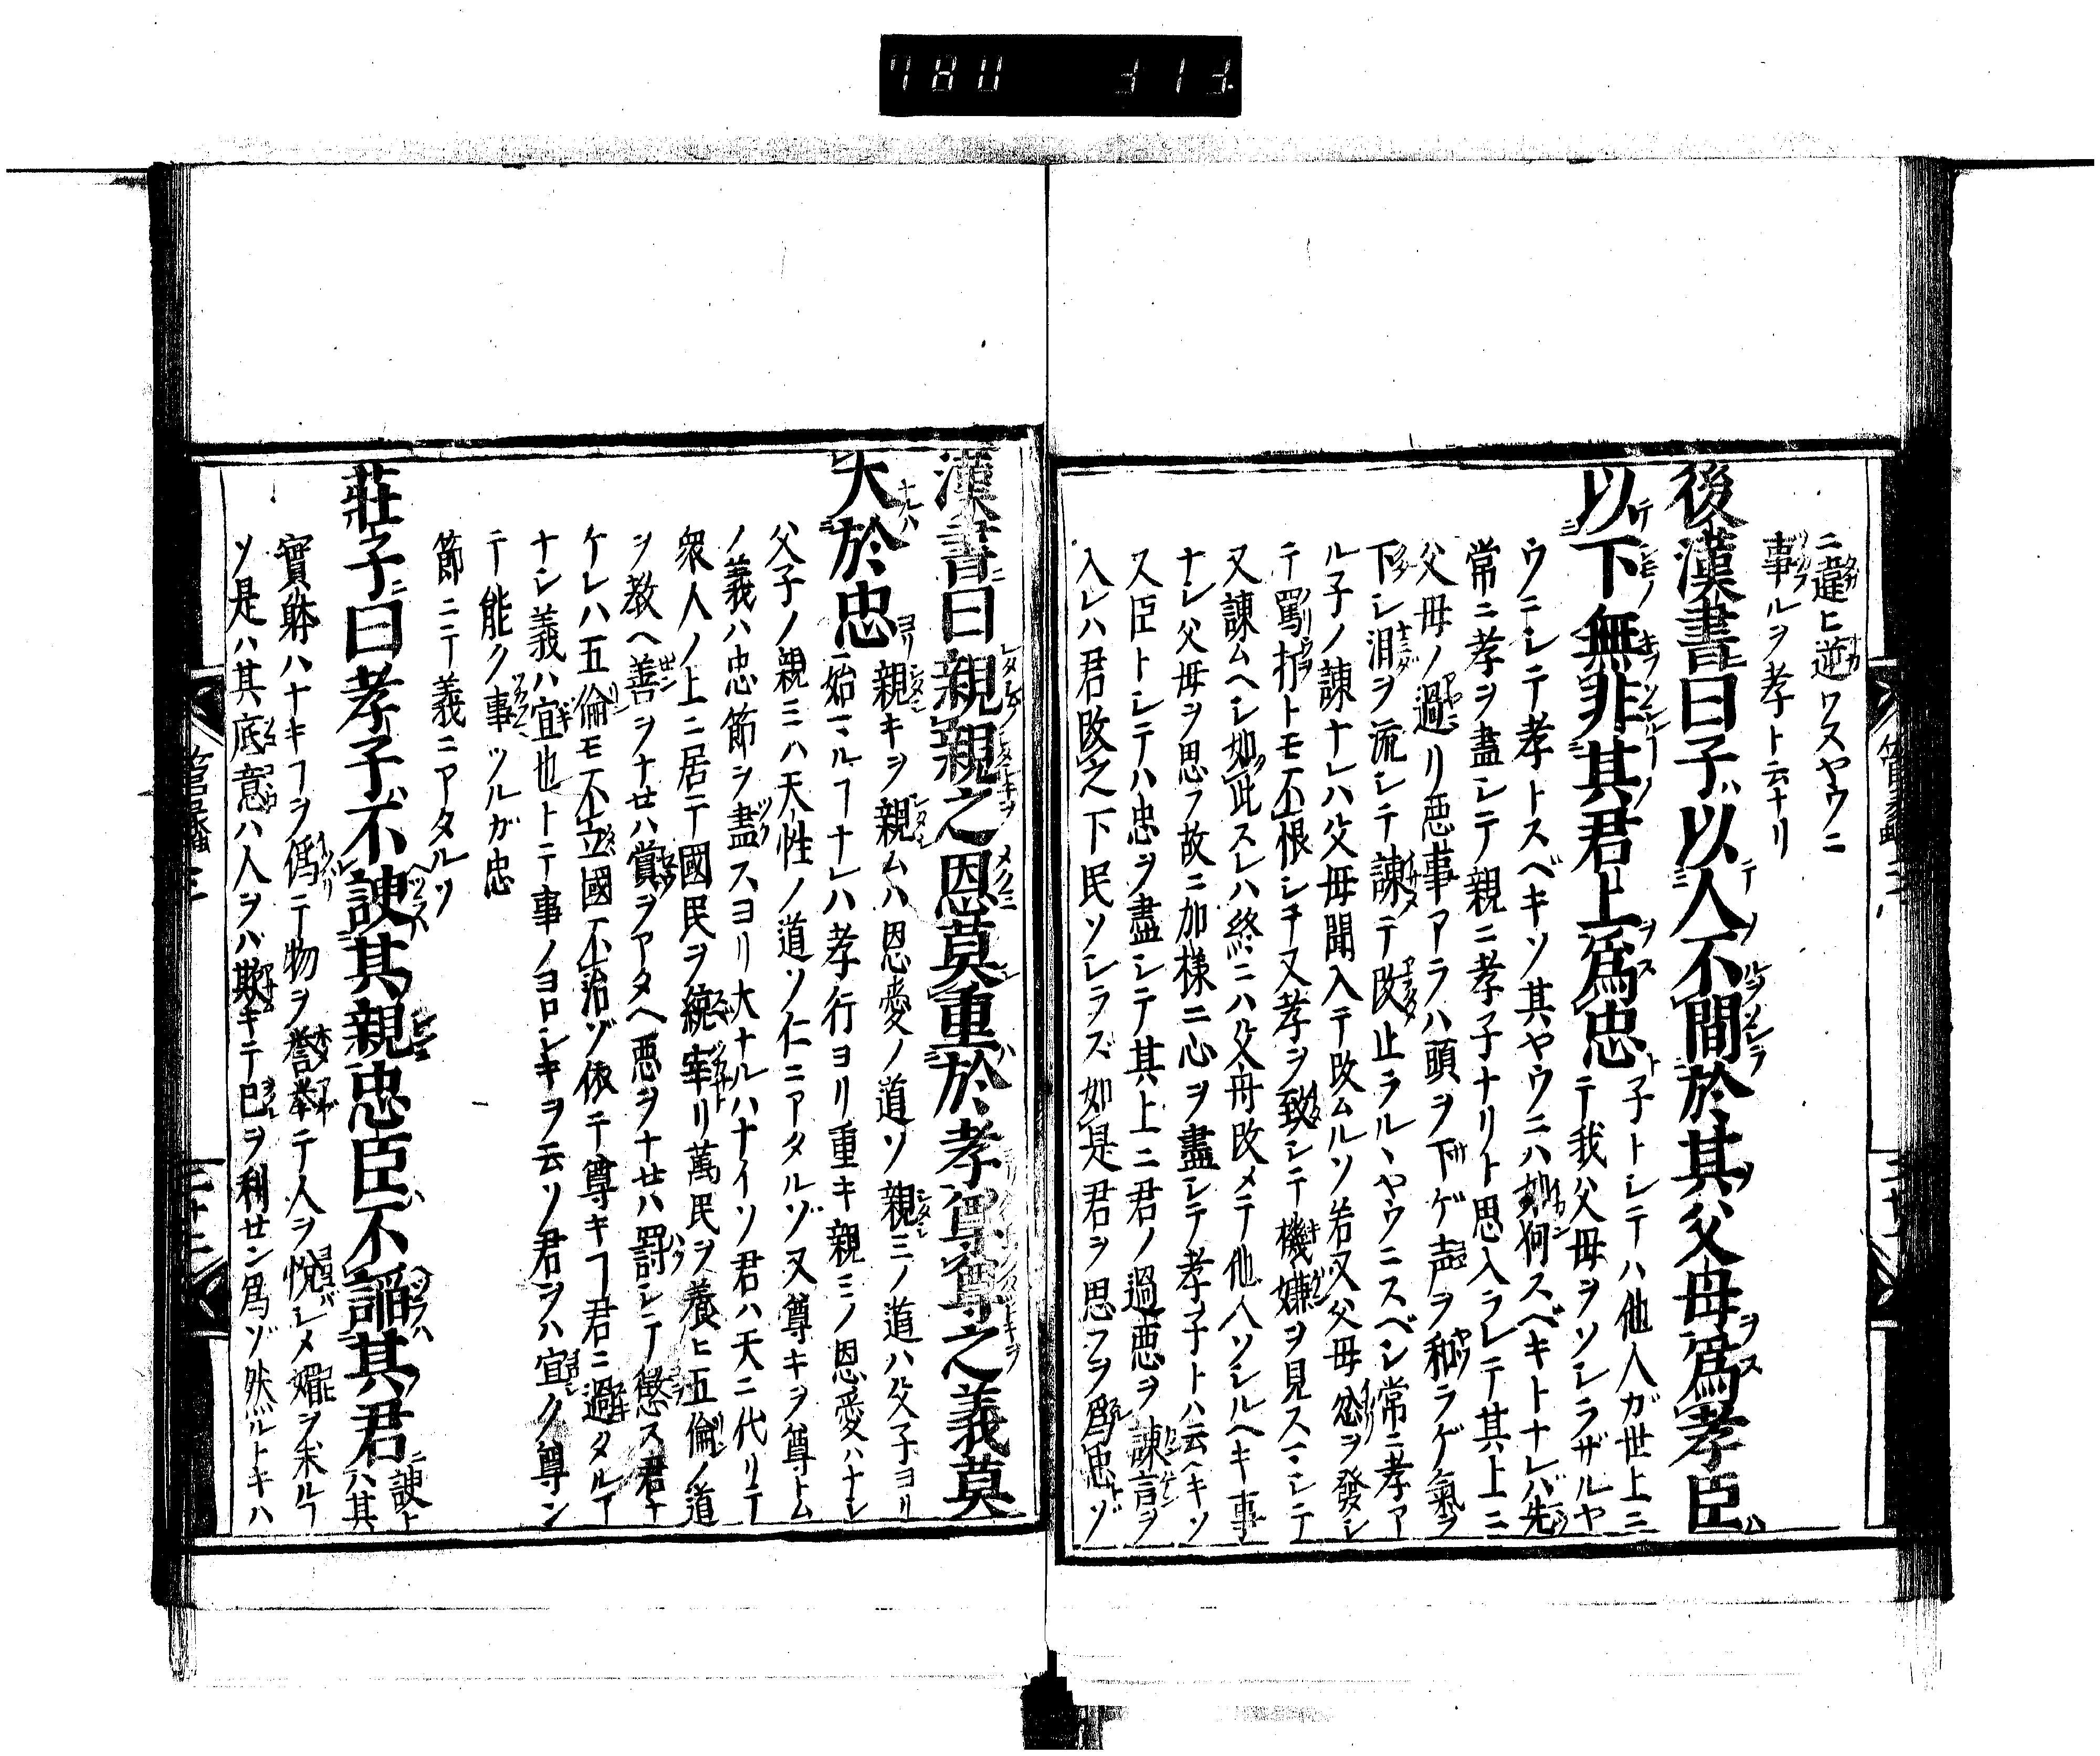 ニ違ヒ逆ワスヤウニ
事ルヲ孝ト云ナリ
後漢書曰子以人不間於其父母爲孝臣
以下無非其君上爲忠
子トシテハ他人ガ世上ニ
テ我父母ヲソシラザルヤ
ウニシテ孝トスベキソ其ヤウニハ如何スベキトナレバ先
常ニ孝ヲ盡シテ親ニ孝子ナリト思入ラレテ其上ニ
父母ノ過リ悪事アラハ頭ヲ下ゲ声ヲ和ラゲ氣ヲ
下シ泪ヲ流シテ諫テ改止ラルヽヤウニスベシ常ニ孝ア
ル子ノ諫ナレハ父母聞入テ改ムルソ若又父母忿ヲ發シ
テ罵トモ不恨シテ又孝ヲ致シテ機嫌ヲ見スマシテ
又諫ムヘシ如此スレハ終ニハ父母改メテ他人ソシルヘキ事
ナシ父母ヲ思フ故ニ加様ニ心ヲ盡シテ孝子トハ云ヘキソ
又臣トシテハ忠ヲ盡シテ其上ニ君ノ過悪ヲ諫言ヲ
入レハ君改之下民ソシラズ如是君ヲ思フヲ爲忠ゾ
漢書曰親親之恩莫重於孝尊尊之義莫
大於忠
親キヲ親ムハ恩愛ノ道ソ親ミノ道ハ父子ヨリ
始マルヿナレハ孝行ヨリ重キ親ミノ恩愛ハナシ
父子ノ親ミハ天性ノ道ソ仁ニアタルゾ又尊キヲ尊トム
ノ義ハ忠節ヲ盡スヨリ大ナルハナイソ君ハ天ニ代リテ
衆人ノ上ニ居テ國民ヲ統宰リ萬民ヲ養ヒ五倫ノ道
ヲ教ヘ善ヲナセハ賞ヲアタヘ悪ヲナセハ罸シテ懲ス君ナ
ケレハ五倫モ不立國不治ゾ依テ尊キヿ君ニ過タルヿ
ナシ義ハ宜也トテ事ノヨロシキヲ云ソ君ヲハ宜ク尊ン
テ能ク事ツルガ忠
節ニテ義ニアタルソ
莊子曰孝子不諛其親忠臣不謟其君
諛ト
ハ其
實躰ハナキヿヲ僞テ物ヲ誉挙テ人ヲ悦シメ媚ヲ求ルヿ
ソ是ハ其底意ハ人ヲバ欺キテ己ヲ利セン爲ゾ然ルトキハ